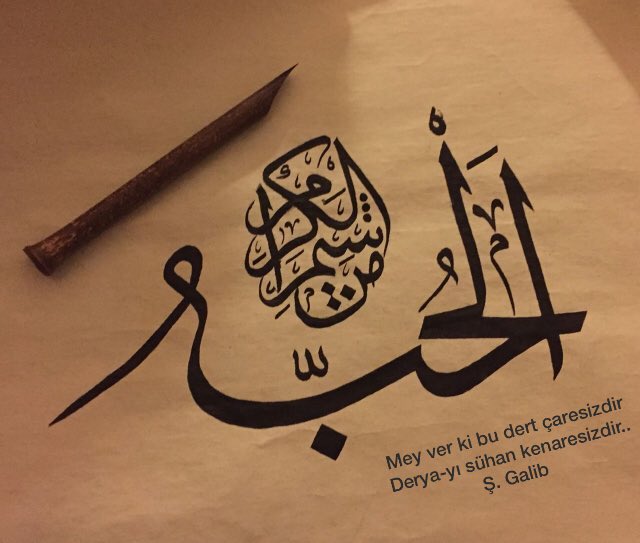 الحُبّه
من شيم الكرام
Mey ver ki bu dert çaresizdir
Derya-yı sühan kenaresizdir..
Ş. Galib